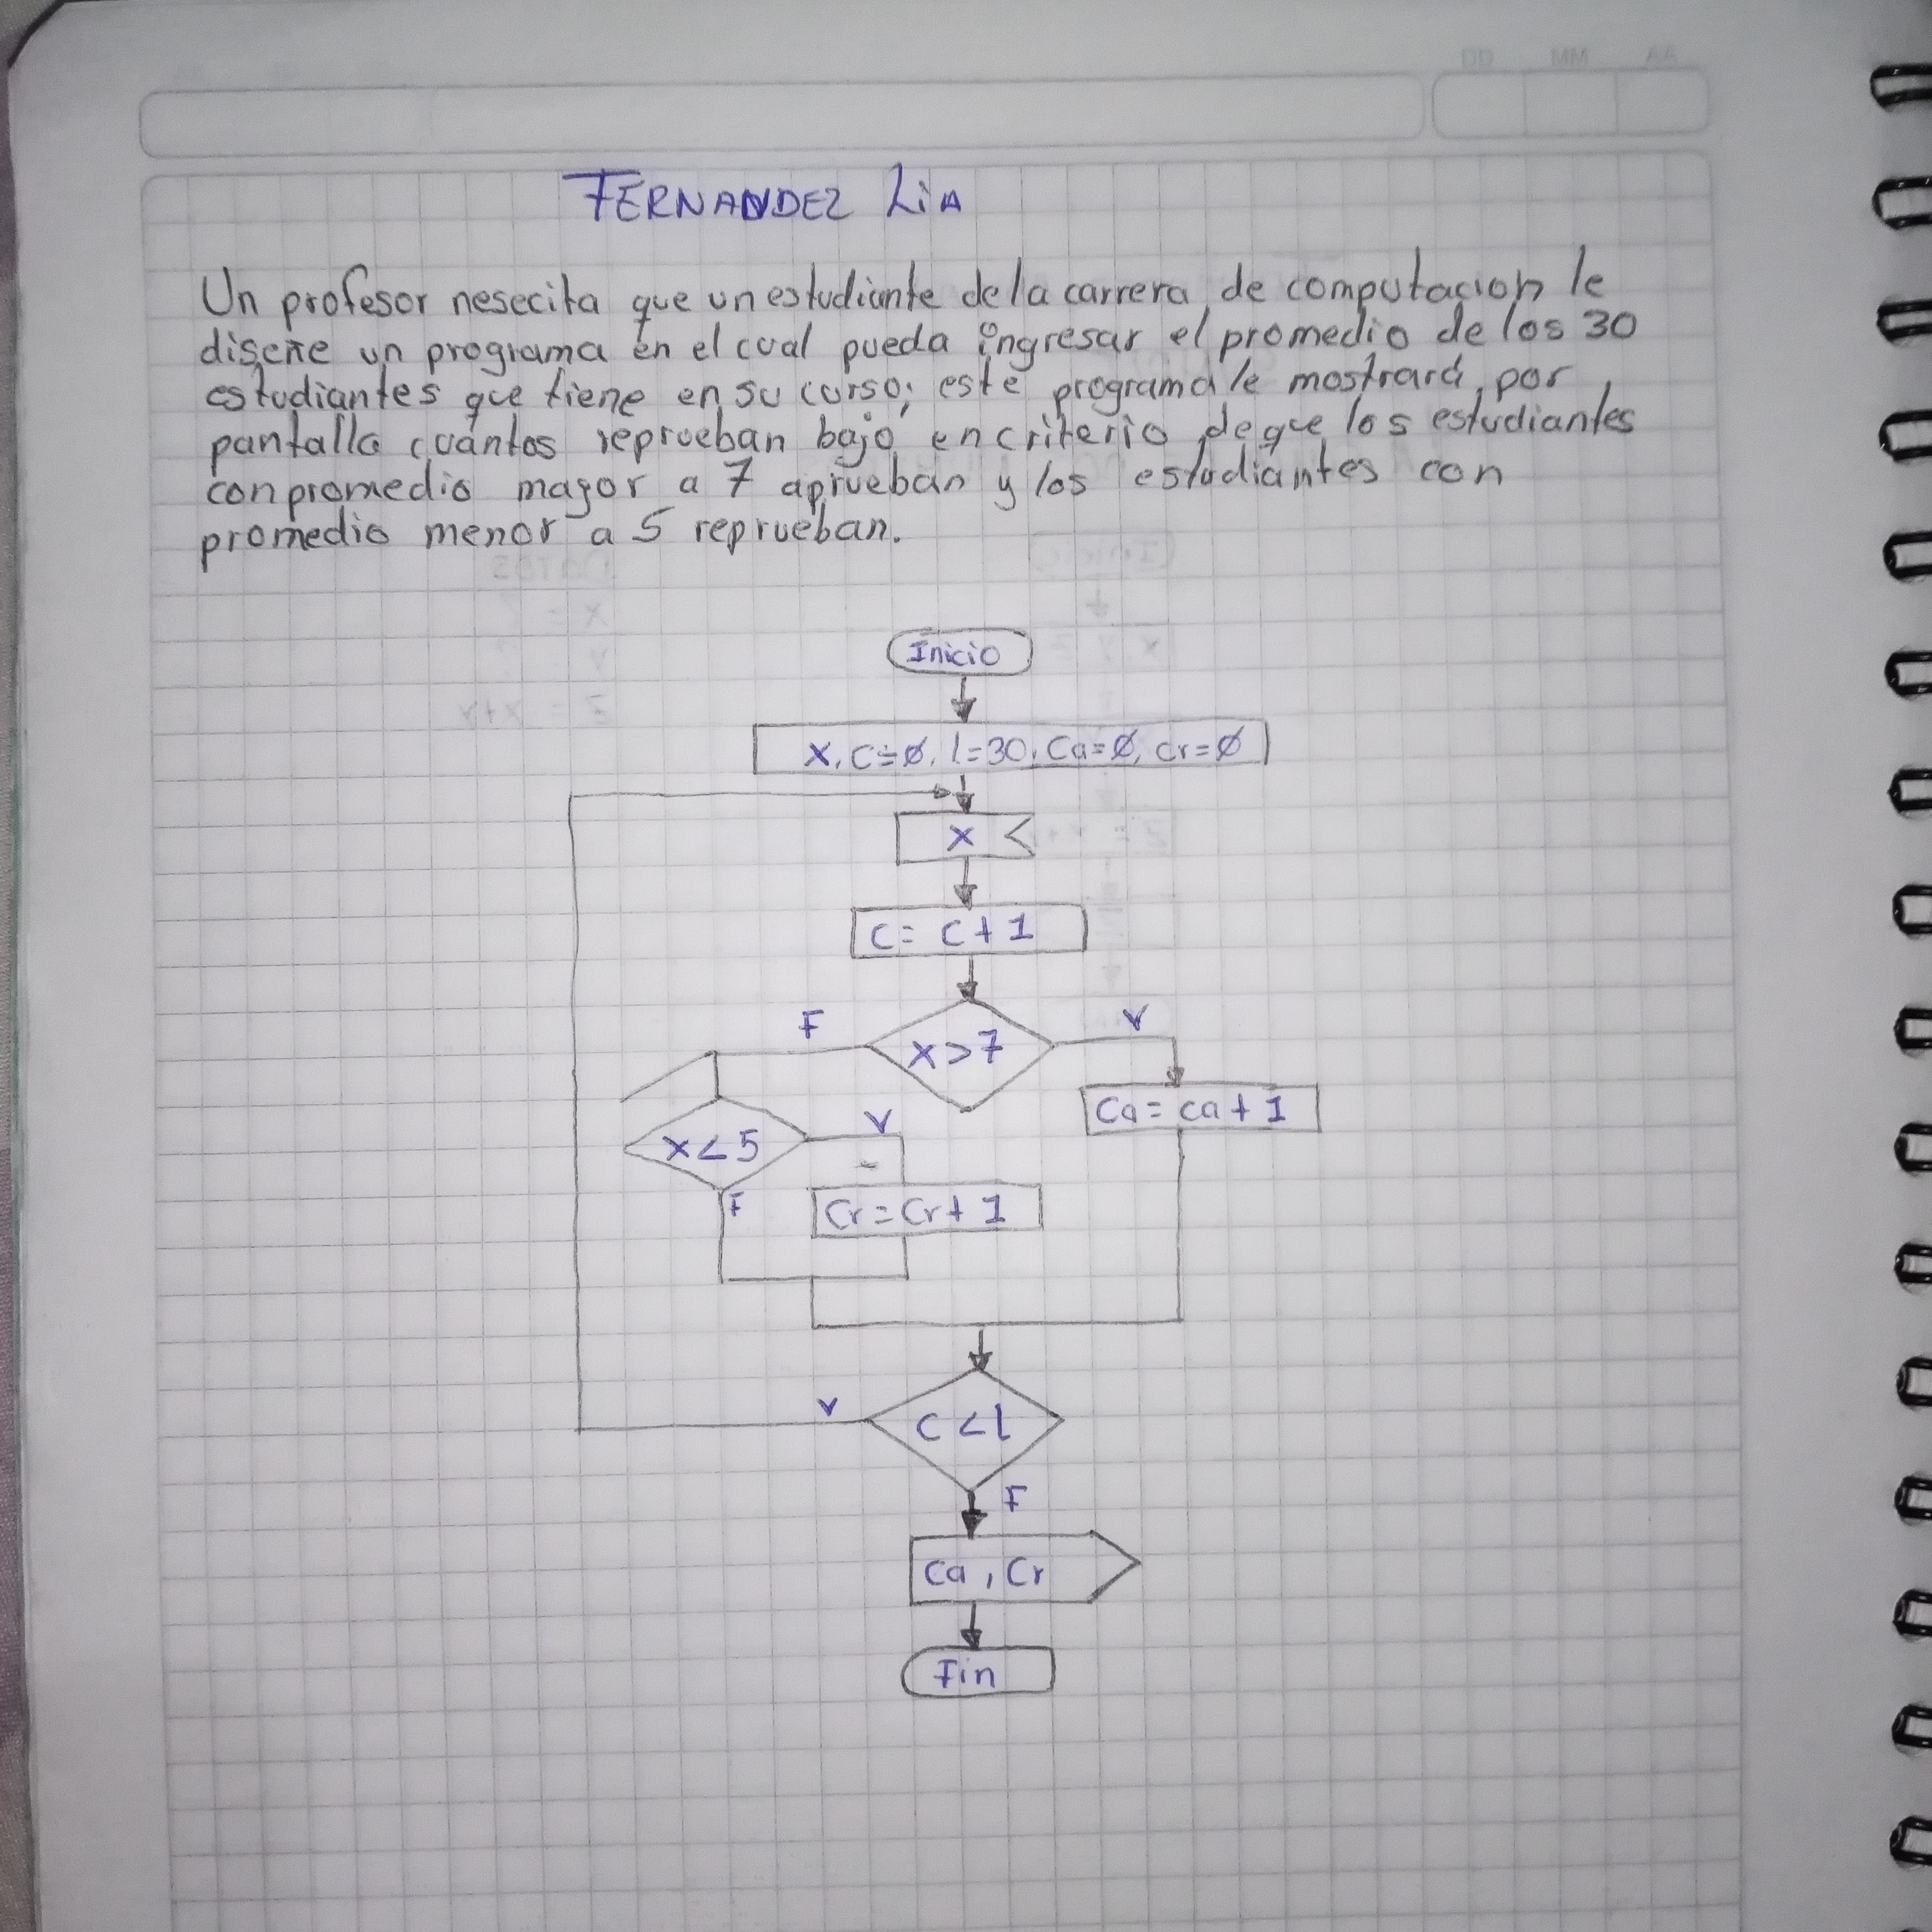 DD MM AA
FERNANDEZ LiA
Un profesor nesecita que un estudiante de la carrera de computación le
diseñe un programa en el cual pueda ingresar el promedio de los 30
estudiantes que tiene en su curso; este programa le mostrará por
pantalla cuántos reprueban bajo en criterio de que los estudiantes
con promedio mayor a 7 aprueban y los estudiantes con
promedio menor a 5 reprueban.
Inicio
X, C=Ø, l=30, Ca=Ø, Cr=Ø
X
C= C+1
F
X>7
V
Ca= ca+1
X<5
V
F
Cr=Cr+1
V
C<l
F
Ca, Cr
Fin